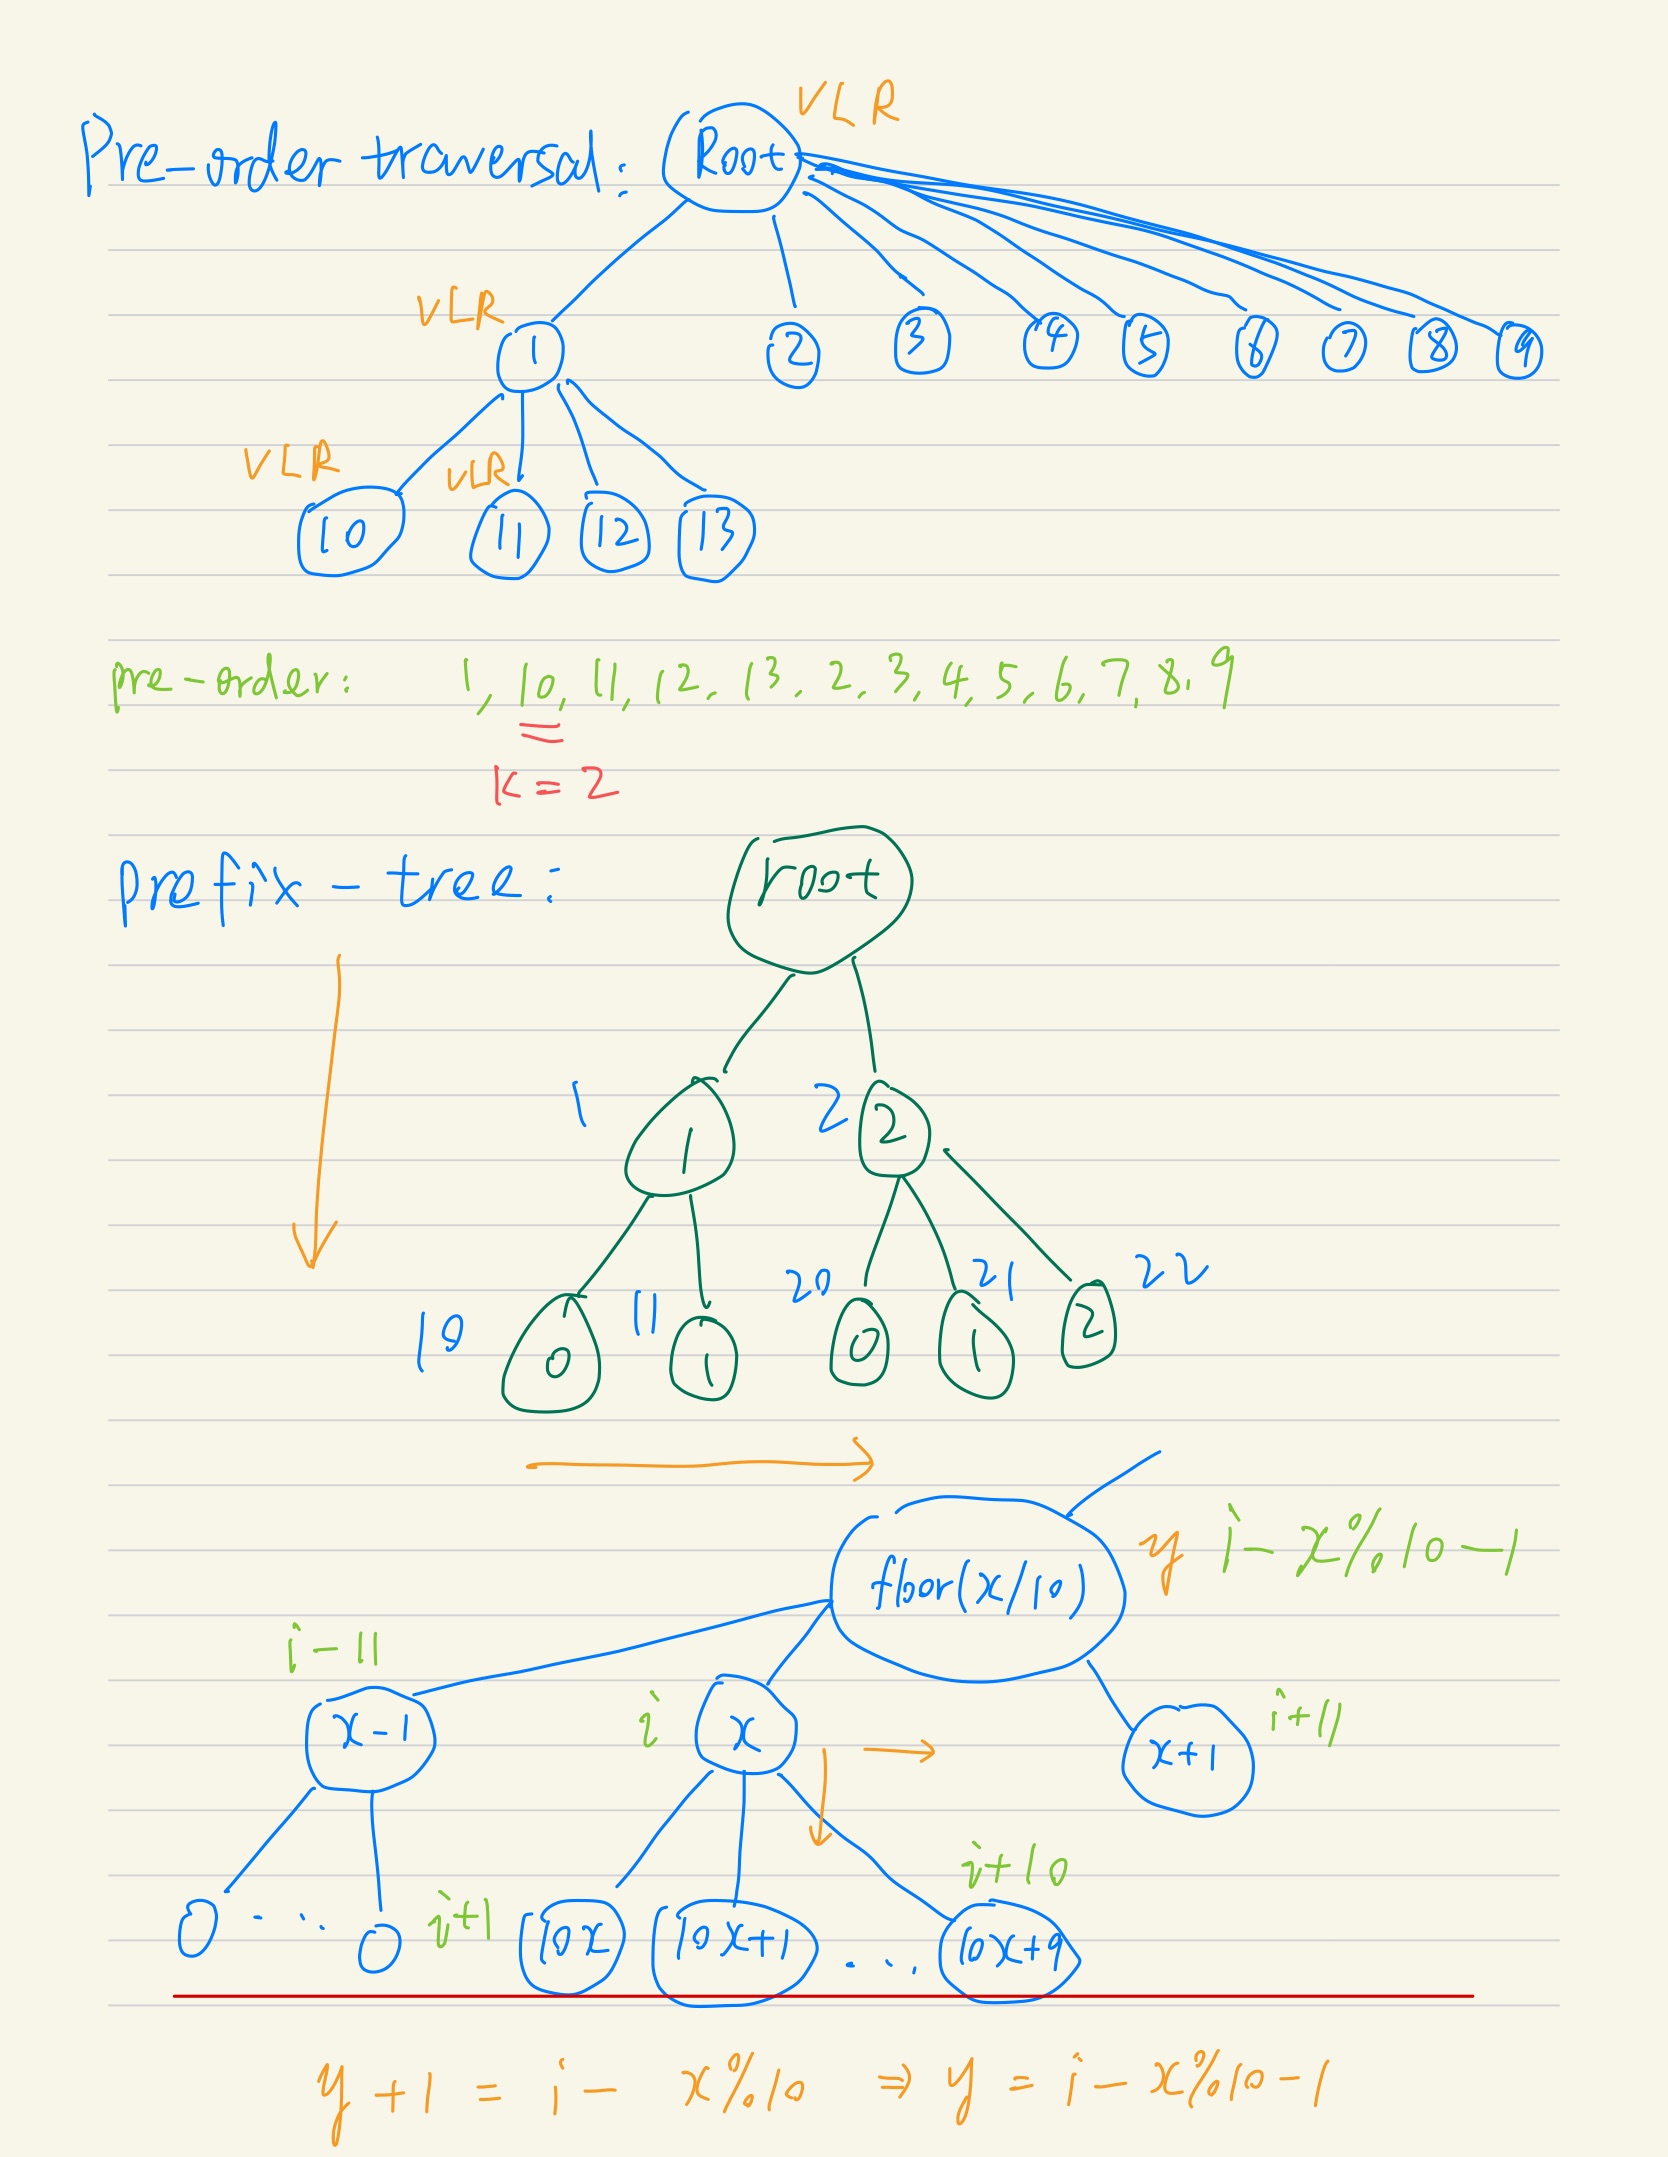 VLR
Pre-order traversal: Root
VLR
1 2 3 4 5 6 7 8 9
VLR VLR
10 11 12 13
pre-order: 1, 10, 11, 12, 13, 2, 3, 4, 5, 6, 7, 8, 9
K = 2
prefix-tree: root
1 1 2 2
10 0 11 1 20 0 21 1 22 2
floor(x/10) y i-x%10-1
i-11 i i+11
x-1 x x+1
i+10
0 ... 0 i+1 10x 10x+1 ... 10x+9
y+1 = i - x%10 ⇒ y = i - x%10-1